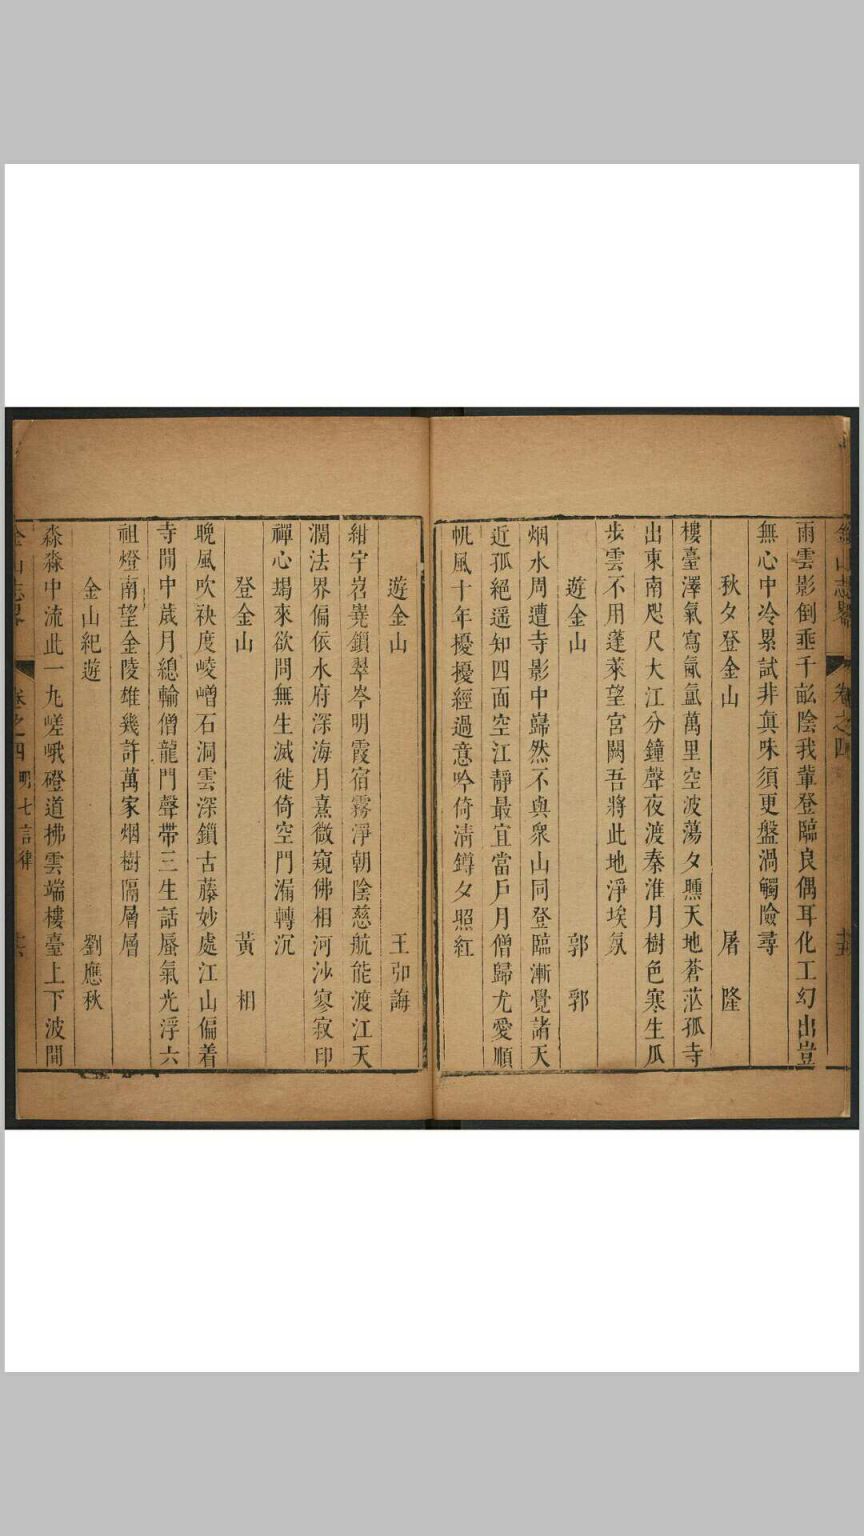 金山志畧 卷之四
雨雲影倒垂千畝陰我輩登臨良偶耳化工幻出豈
無心中冷累試非眞味須更盤渦觸險尋
秋夕登金山 屠隆
樓臺澤氣寫氤氲萬里空波蕩夕曛天地蒼茫孤寺
出東南咫尺大江分鐘聲夜渡秦淮月樹色寒生瓜
步雲不用蓬萊望宮闕吾將此地淨埃氛
遊金山 郭郛
烟水周遭寺影中巋然不與衆山同登臨漸覺諸天
近孤絕遥知四面空江靜最宜當戶月僧歸尤愛順
帆風十年擾擾經過意吟倚清鐏夕照紅
遊金山 王弘誨
紺宇岧嶤鎖翠岑明霞宿霧淨朝陰慈航能渡江天
濶法界偏依水府深海月熹微窺佛相河沙寥寂印
禪心朅來欲問無生滅徙倚空門漏轉沉
登金山 黃相
晚風吹袂度崚嶒石洞雲深鎖古藤妙處江山偏着
寺閒中歲月總輸僧龍門聲帶三生話蜃氣光浮六
祖燈南望金陵雄幾許萬家烟樹隔層層
金山紀遊 劉應秋
淼淼中流此一丸嵯峨磴道拂雲端樓臺上下波間
金山志畧 卷之四 明七言律